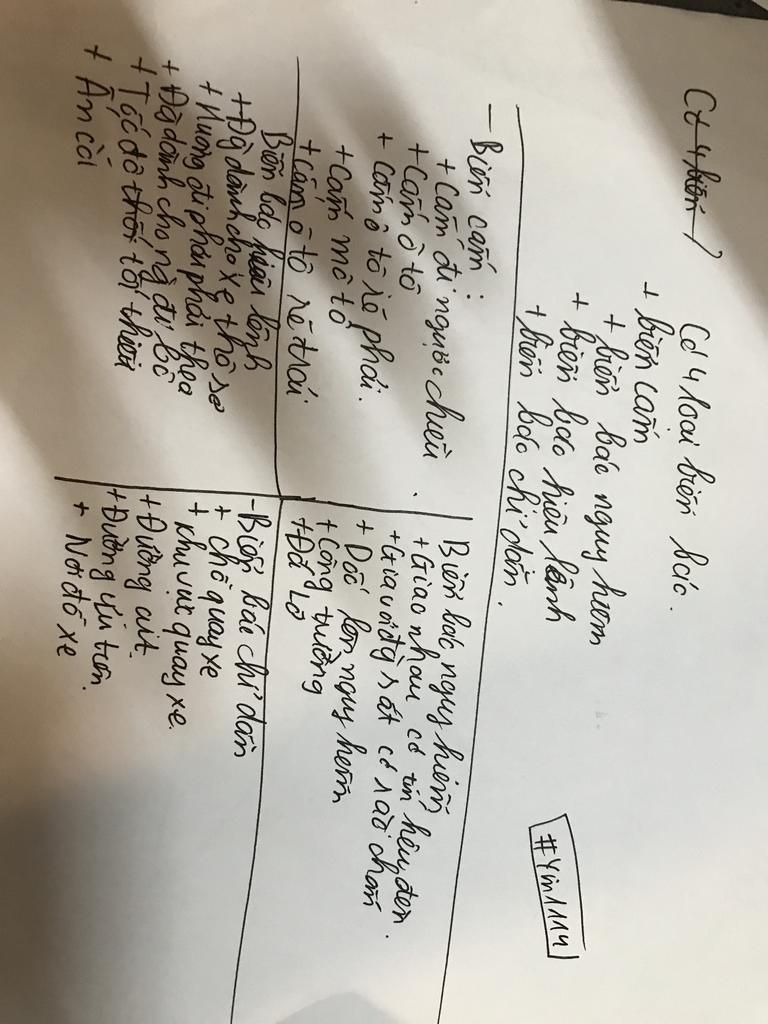 Có 4 biển
Có 4 loại biển báo.
+ biển cấm
+ biển báo nguy hiểm
+ biển báo hiệu lệnh
+ biển báo chỉ dẫn.
#Yin1114
- Biển cấm :
+ Cấm đi ngược chiều
+ Cấm ô tô
+ Cấm ô tô rẽ phải.
+ Cấm mô tô
+ Cấm ô tô rẽ trái
Biển báo nguy hiểm
+ Giao nhau có tín hiệu đèn.
+ Giao với đg sắt có rào chắn
+ Dốc lên nguy hiểm
+ Công trường
+ Đá lở
Biển báo hiệu lệnh
+ Đg dành cho xe thô sơ
+ Hướng đi phải phải theo
+ Đg dành cho ng đi bộ
+ Tốc độ tối thiểu
+ Ấn còi
- Biển báo chỉ dẫn
+ chỗ quay xe
+ khu vực quay xe.
+ Đường cụt.
+ Đường ưu tiên.
+ Nơi đỗ xe